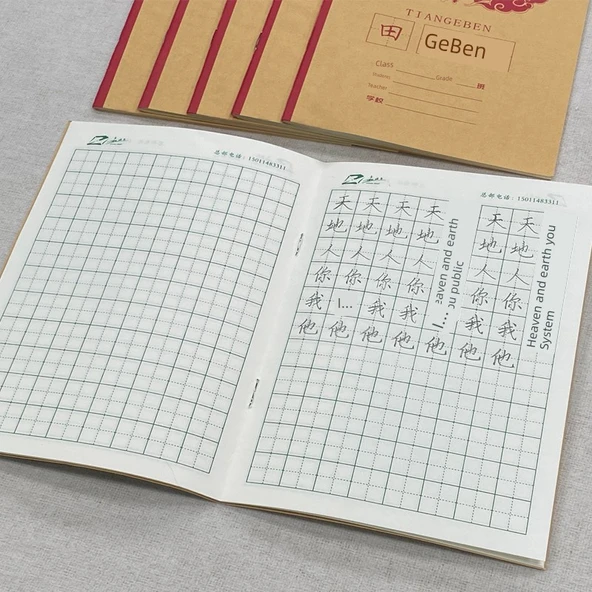 TIANGEBEN
田 GeBen
Class
Students Grade 班
Teacher
学校
总部电话：15011483311
总部电话：15011483311
天 天 天 天 天 天
地 地 地 地 地 地
人 人 人 人 人 人
你 你 你 你 你 你
我 I... 我 我 I... 我 我
他 他 他 他 他 他 他
eaven and earth
ou public
Heaven and earth you
System